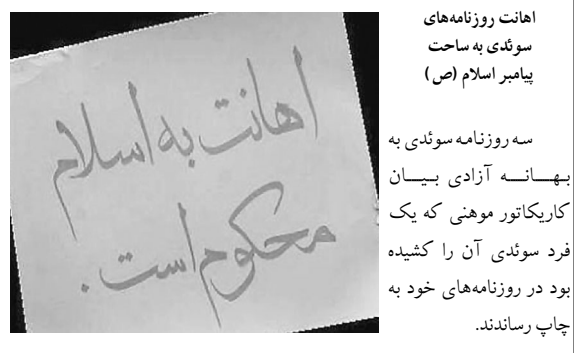 اهانت روزنامه‌های
سوئدی به ساحت
پیامبر اسلام (ص)
سه روزنامه سوئدی به
بهانه آزادی بیان
کاریکاتور موهنی که یک
فرد سوئدی آن را کشیده
بود در روزنامه‌های خود به
چاپ رساندند.
اهانت به اسلام
محکوم است.